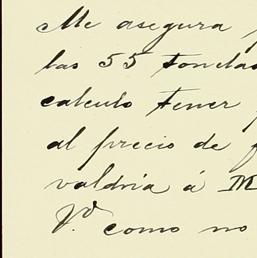 Me asegura
las 55 Tonelad
calculo Tener
al precio de
valdria á M
Vd. como no